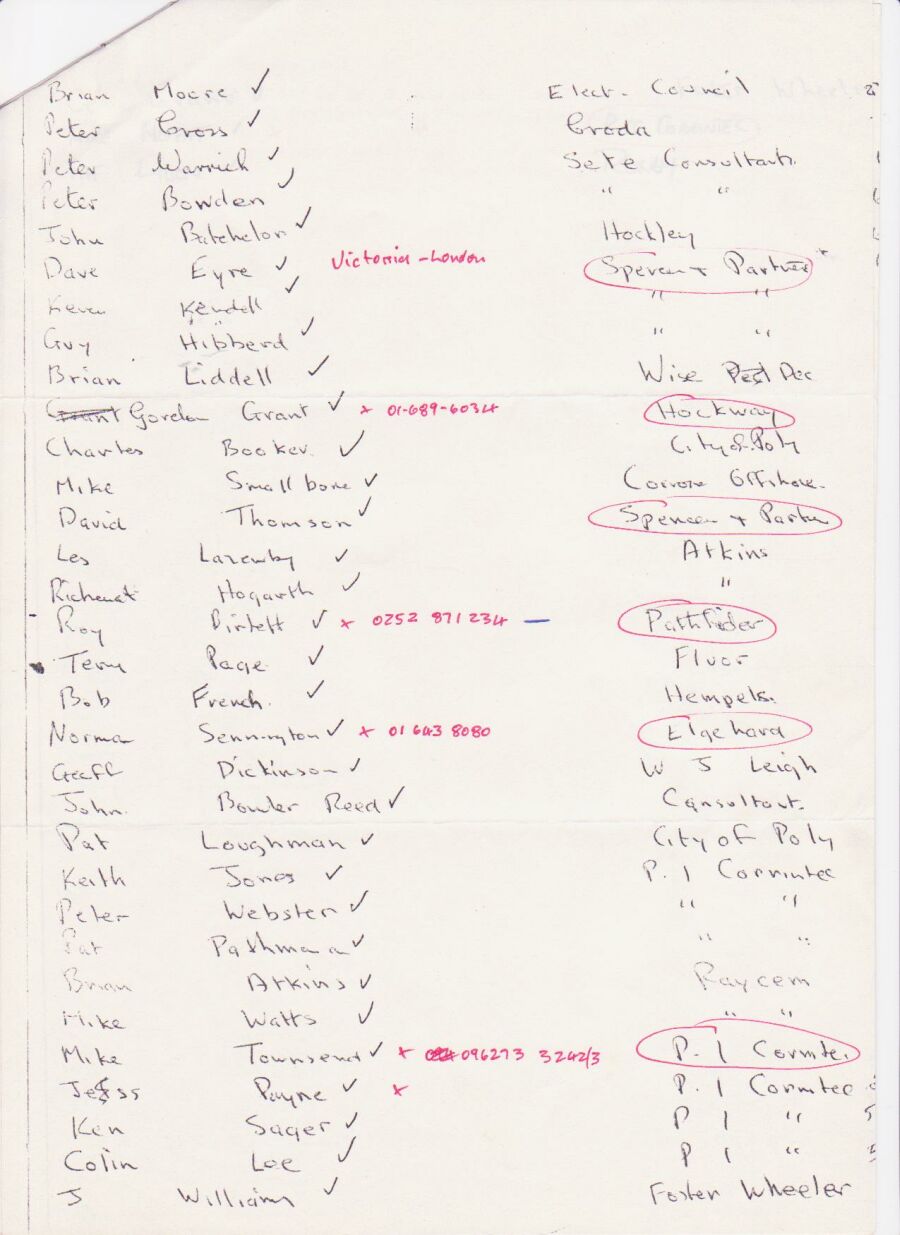 Brian Moore ✓ Elect. Council
Peter Gross ✓ Croda
Peter Warrick ✓ Sete Consultants.
Peter Bowden ✓ " "
John Batchelor ✓ Hockley
Dave Eyre ✓ Victoria - London Spencer + Partner
Keven Kendell ✓ " "
Guy Hibberd ✓ " "
Brian Liddell ✓ Wise Dec
Gordon Grant ✓ x 01-689-6034 Hockway
Charles Booker. ✓ City of. Poly
Mike Smallbone ✓ Offshore.
David Thomson ✓ Spencer + Partner
Les Lazenby ✓ Atkins
Hogarth ✓ "
Roy ✓ x 0252 871234 — Pathfinder
Terry Page ✓ Fluor
Bob French. ✓ Hempels.
Norman Sennington ✓ x 01 643 8080 Elgehard
Geoff Dickinson ✓ W J Leigh
John. Bowler Reed ✓ Consultant.
Pat Loughman ✓ City of Poly
Keith Jones ✓ P. 1 Corrintec
Peter Webster ✓ " "
Pat Pathmana ✓ " "
Brian Atkins ✓ Raycem
Mike Watts ✓ " "
Mike Townsend ✓ x 096273 3242/3 P. 1 Corrnte.
Jess Payne ✓ x P. 1 Corrntec
Ken Sager ✓ P 1 "
Colin Lee ✓ P 1 "
J William ✓ Foster Wheeler